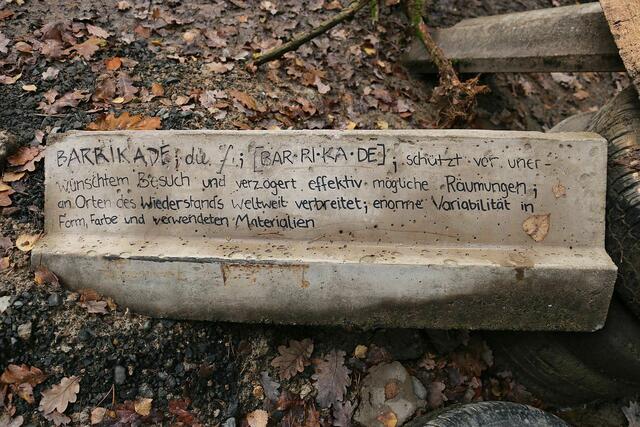 BARRIKADE; die /.; [BAR·RI·KA·DE]; schützt vor uner-
wünschtem Besuch und verzögert effektiv mögliche Räumungen;
an Orten des Wiederstands weltweit verbreitet; enorme Variabilität in
Form, Farbe und verwendeten Materialien